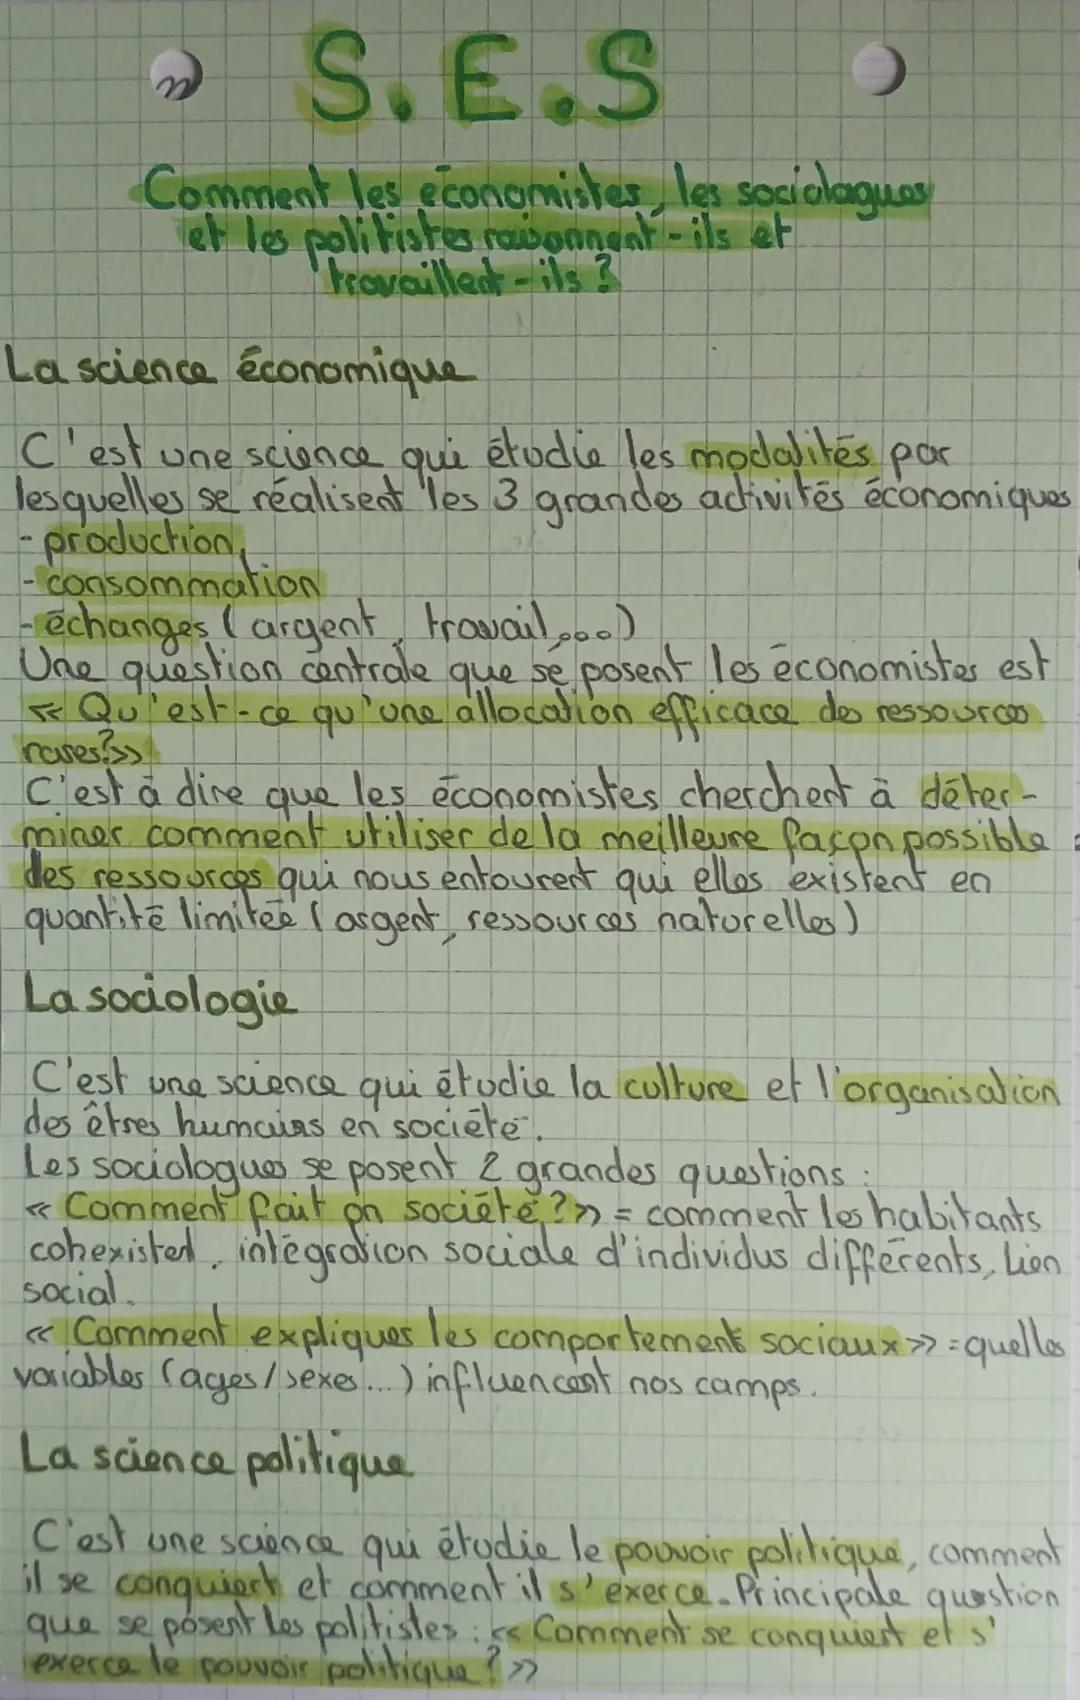 S.E.S
Comment les économistes, les sociologues
et les politistes raisonnent-ils et
travaillent-ils ?
La science économique
C'est une science qui étudie les modalités par
lesquelles se réalisent les 3 grandes activités économiques
- production,
- consommation
- échanges (argent, travail,...)
Une question centrale que se posent les économistes est
« Qu'est-ce qu'une allocation efficace des ressources
rares?»
C'est à dire que les économistes cherchent à déter-
miner comment utiliser de la meilleure façon possible
des ressources qui nous entourent qui elles existent en
quantité limitée (argent, ressources naturelles)
La sociologie
C'est une science qui étudie la culture et l'organisation
des êtres humains en société.
Les sociologues se posent 2 grandes questions :
« Comment fait on société ? » = comment les habitants
cohexistent, intégration sociale d'individus différents, lien
social.
« Comment expliquer les comportements sociaux » = quelles
variables (ages/sexes...) influencent nos comps.
La science politique
C'est une science qui étudie le pouvoir politique, comment
il se conquiert et comment il s'exerce. Principale question
que se posent les politistes : « Comment se conquiert et s'
exerce le pouvoir politique ? »